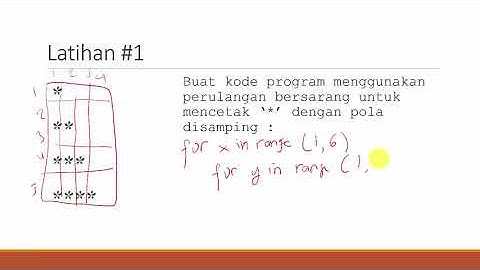 Latihan #1
1 2 3 4
1 *
2
3 **
4 ***
5 ****
Buat kode program menggunakan
perulangan bersarang untuk
mencetak ‘*’ dengan pola
disamping :
for x in range (1,6)
for y in range (1,